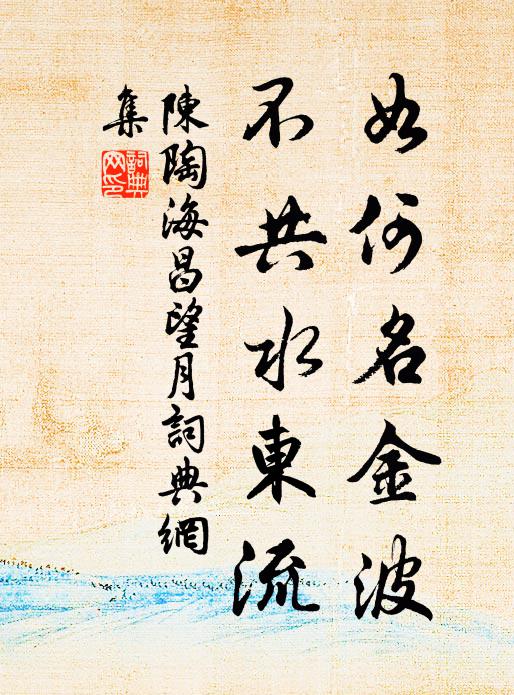 如何名金波
不共水東流
陳陶海昌望月詞典網
集
詞典網印